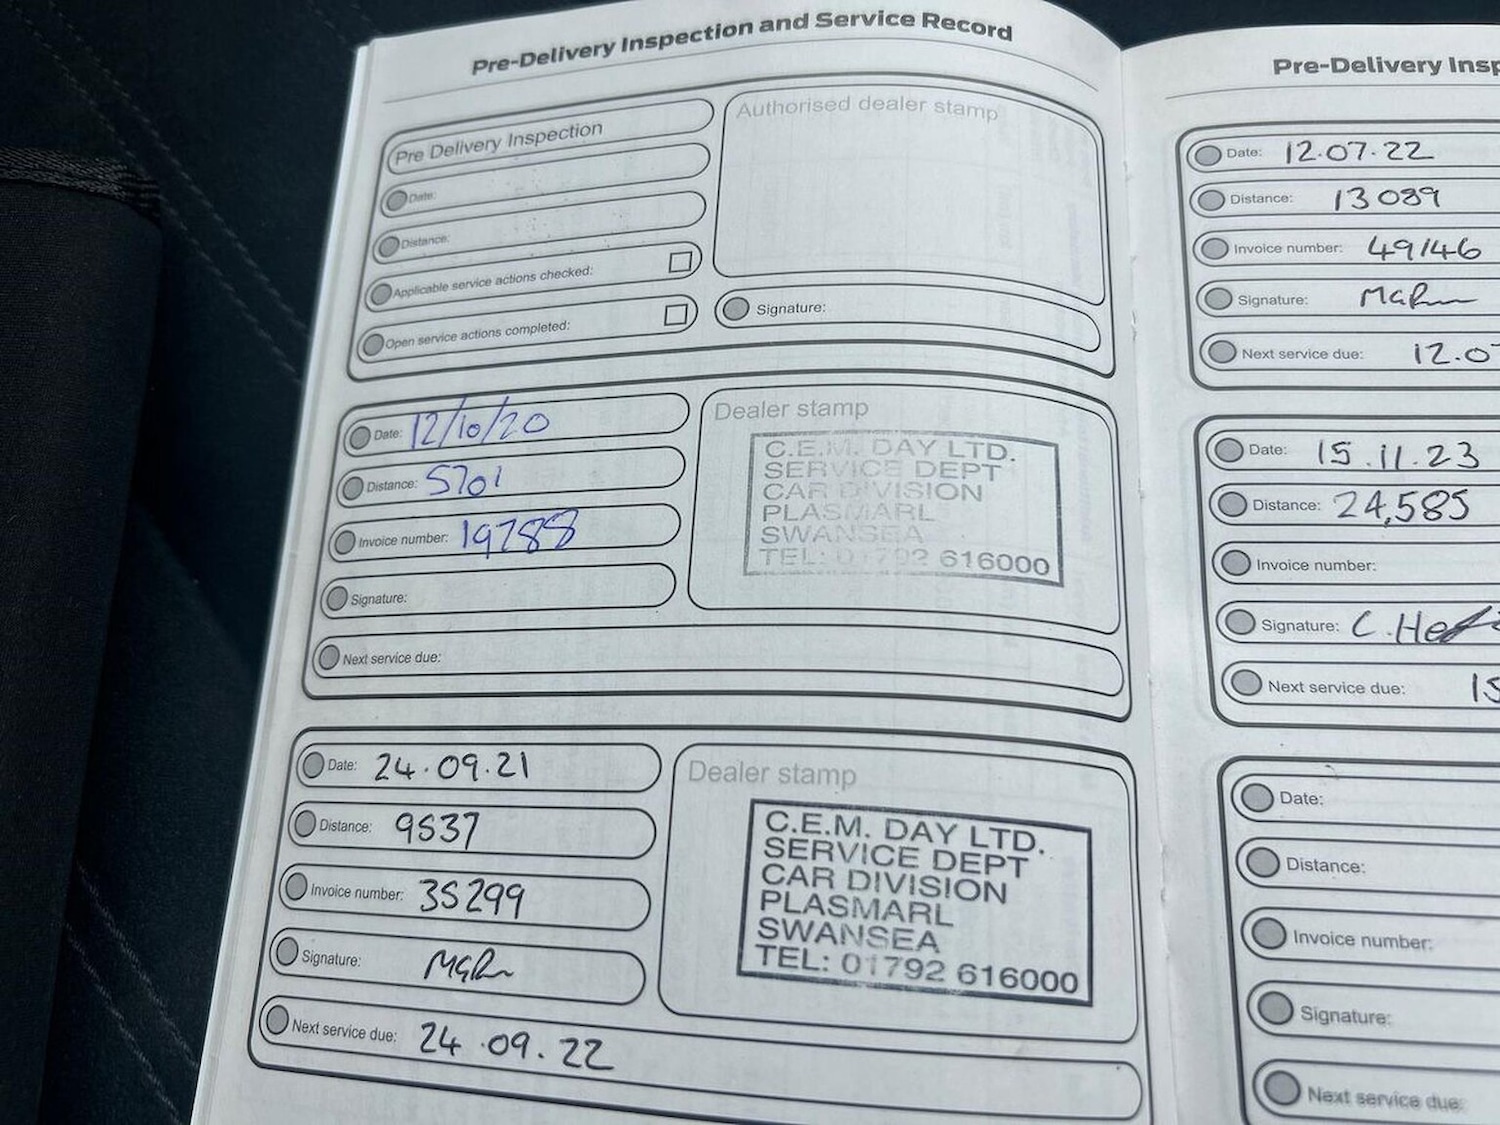 Pre-Delivery Inspection and Service Record
Pre Delivery Inspection
Date:
Distance:
Applicable service actions checked:
Open service actions completed:
Authorised dealer stamp
Signature:
Date: 12/10/20
Distance: 5701
Invoice number: 19788
Signature:
Next service due:
Dealer stamp
C.E.M. DAY LTD.
SERVICE DEPT
CAR DIVISION
PLASMARL
SWANSEA
TEL: 01792 616000
Date: 24.09.21
Distance: 9537
Invoice number: 35299
Signature:
Next service due: 24.09.22
Dealer stamp
C.E.M. DAY LTD.
SERVICE DEPT
CAR DIVISION
PLASMARL
SWANSEA
TEL: 01792 616000
Pre-Delivery Insp
Date: 12.07.22
Distance: 13089
Invoice number: 49146
Signature:
Next service due: 12.0
Date: 15.11.23
Distance: 24,585
Invoice number:
Signature: C.
Next service due: 15
Date:
Distance:
Invoice number:
Signature:
Next service due: